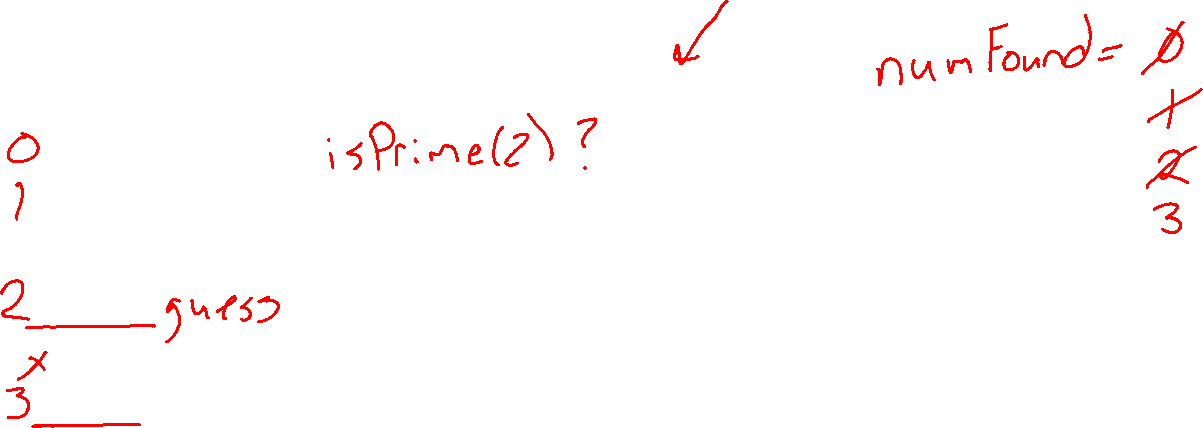 numFound= 0
1
0
isPrime(2)?
2
1
3
2 guess
x
3